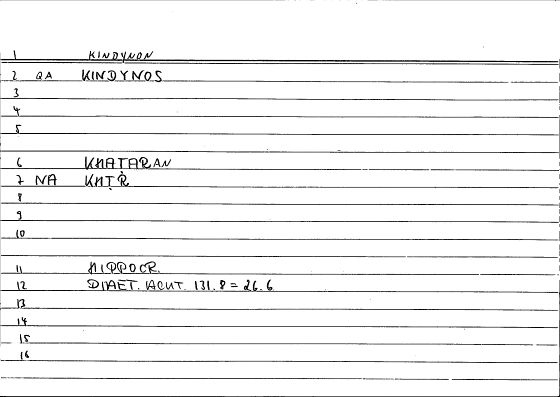 1 KINDYNON
2 QA KINDYNOS
3
4
5
6 KHATARAN
7 NA KHṬṘ
8
9
10
11 HIPPOCR.
12 DIAET. ACUT. 131.8 = 26.6
13
14
15
16